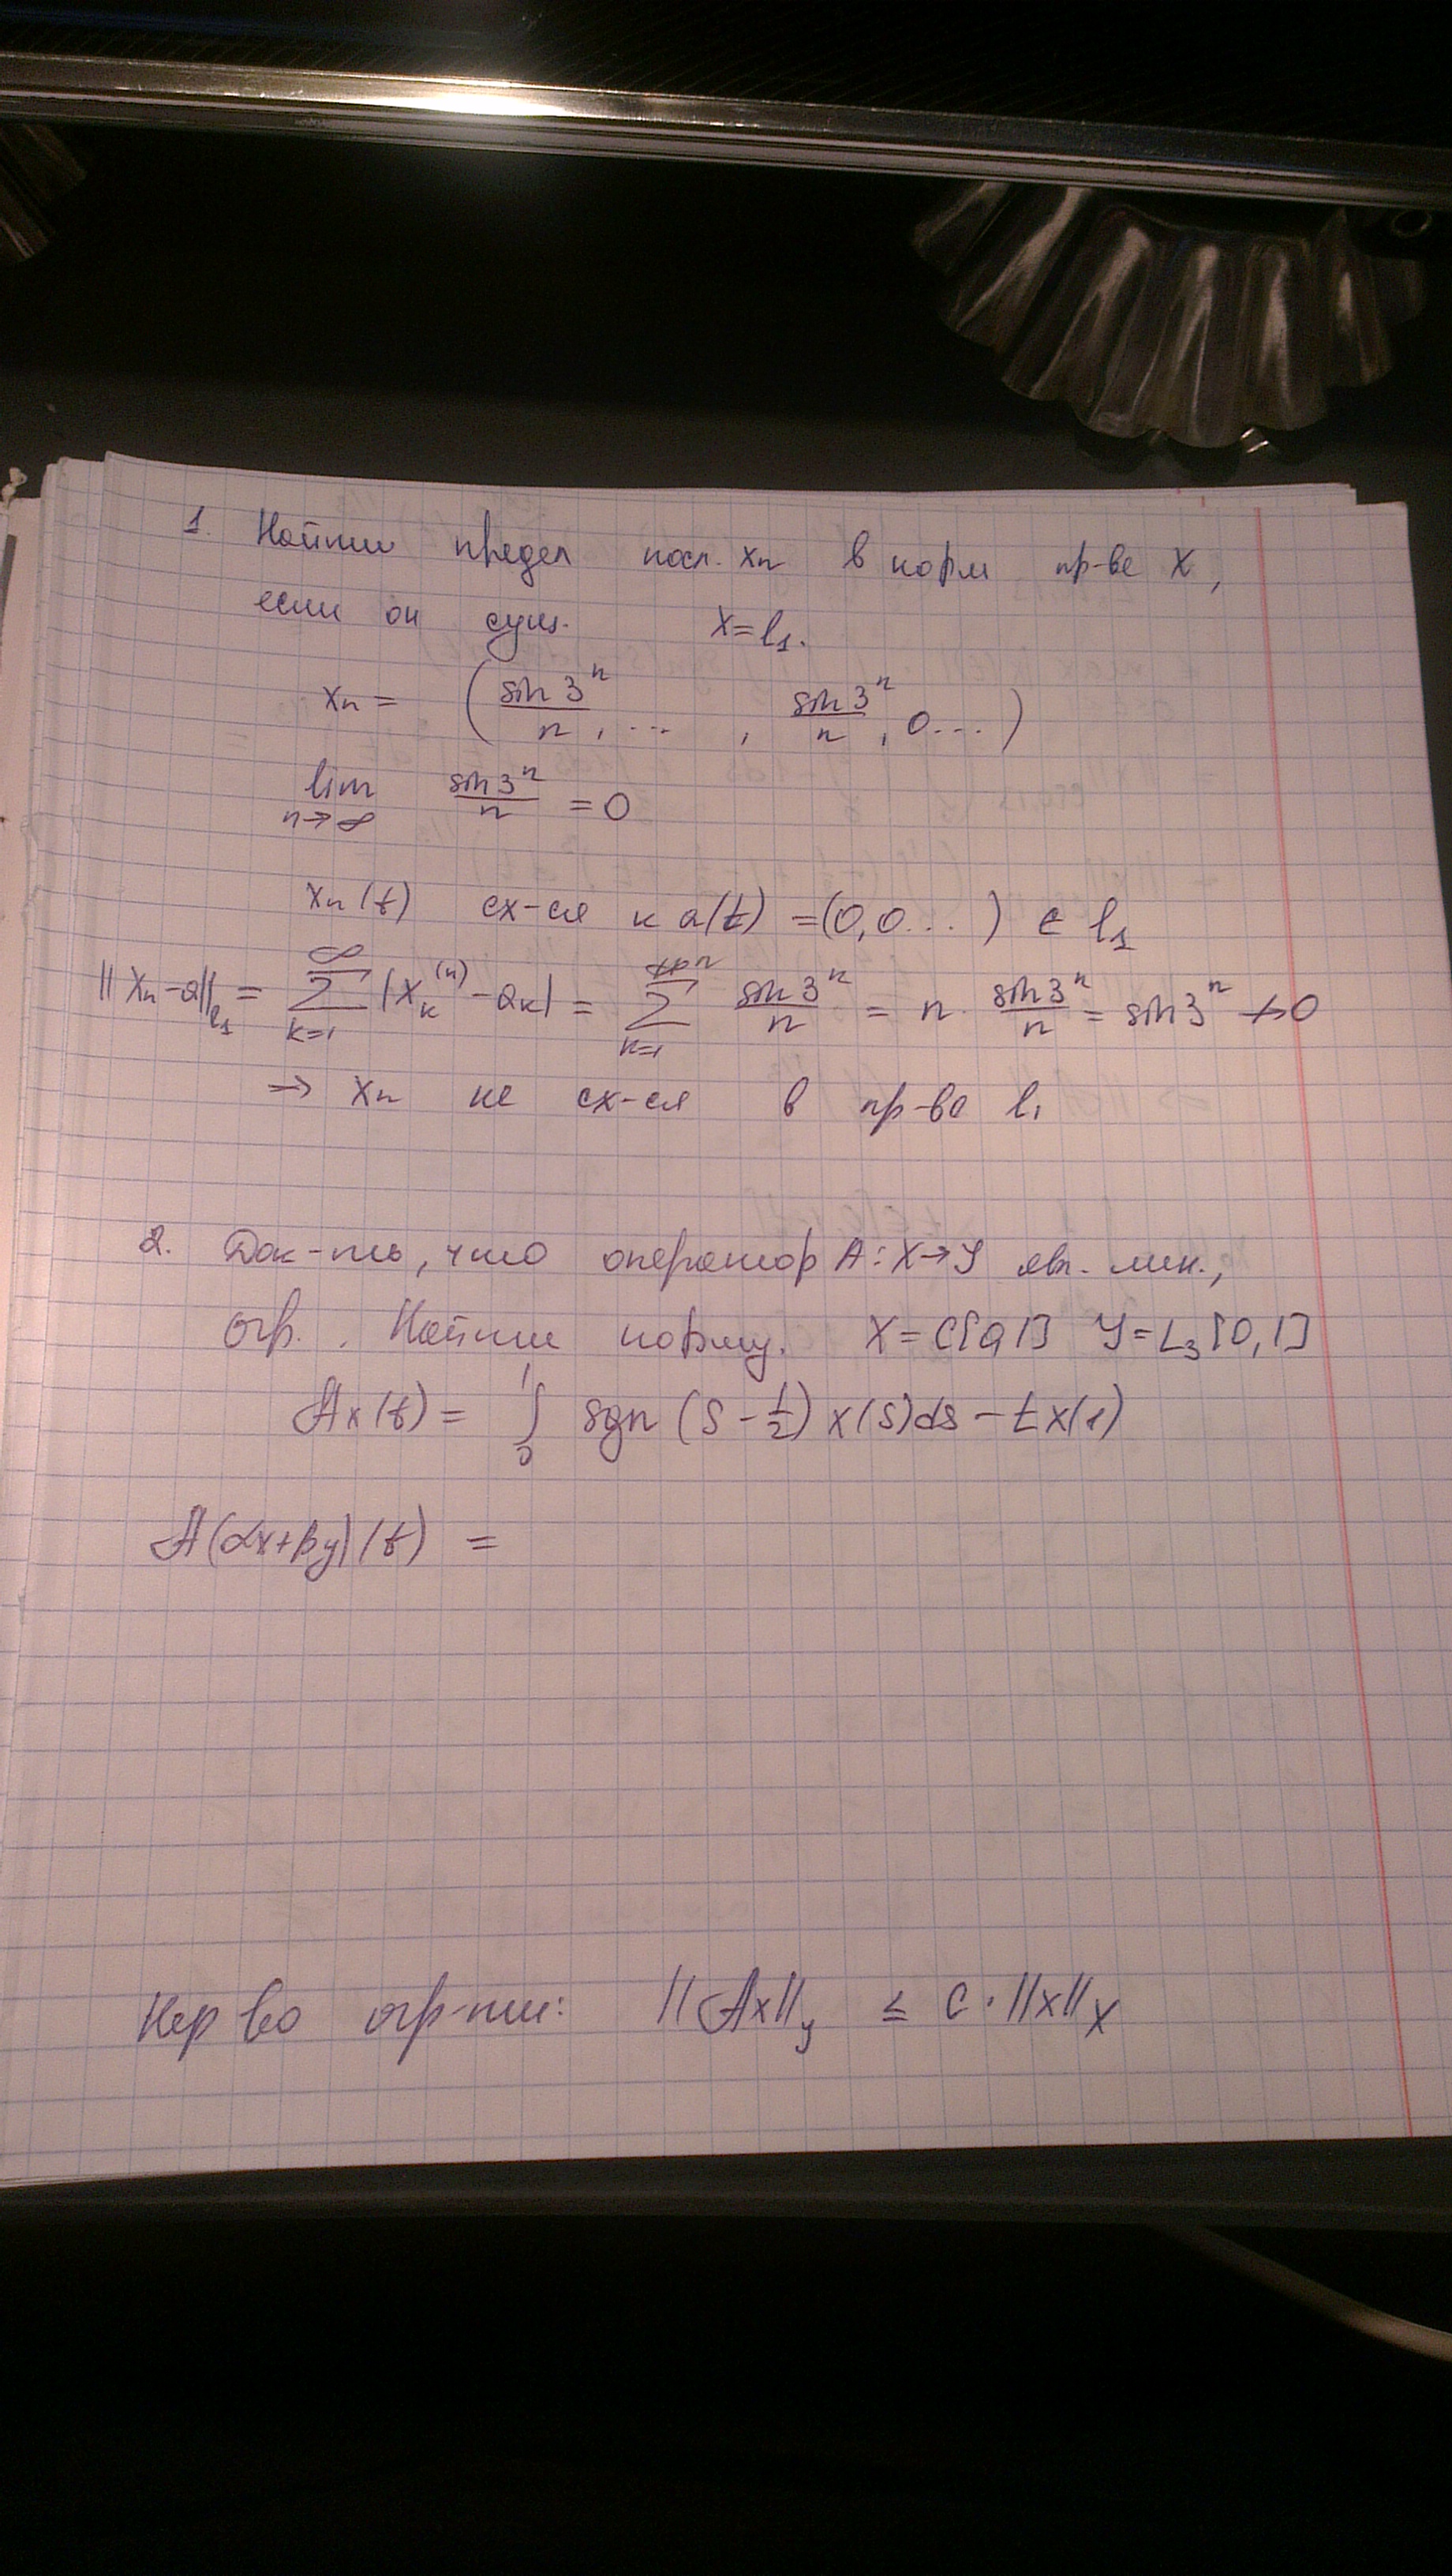 1. Найти предел посл. xn в норм пр-ве X,
если он сущ. X = l₁.
xn = (sin 3ⁿ/n, ..., sin 3ⁿ/n, 0...)
lim n→∞ sin 3ⁿ/n = 0
xn(t) сх-ся к a(t) = (0,0...) ∈ l₁
||xn-a||l₁ = ∑ k=1 ∞ |xk⁽ⁿ⁾ - ak| = ∑ k=1 n sin 3ⁿ/n = n · sin 3ⁿ/n = sin 3ⁿ ↛ 0
→ xn не сх-ся в пр-ве l₁
2. Док-ть, что оператор A: X→Y явл. лин.,
огр. Найти норму. X = C[0,1] Y = L₃[0,1]
Ax(t) = ∫₀¹ sgn (s - 1/2) x(s)ds - t x(1)
A(αx+βy)(t) =
Нер во огр-ти: ||Ax||y ≤ C · ||x||X